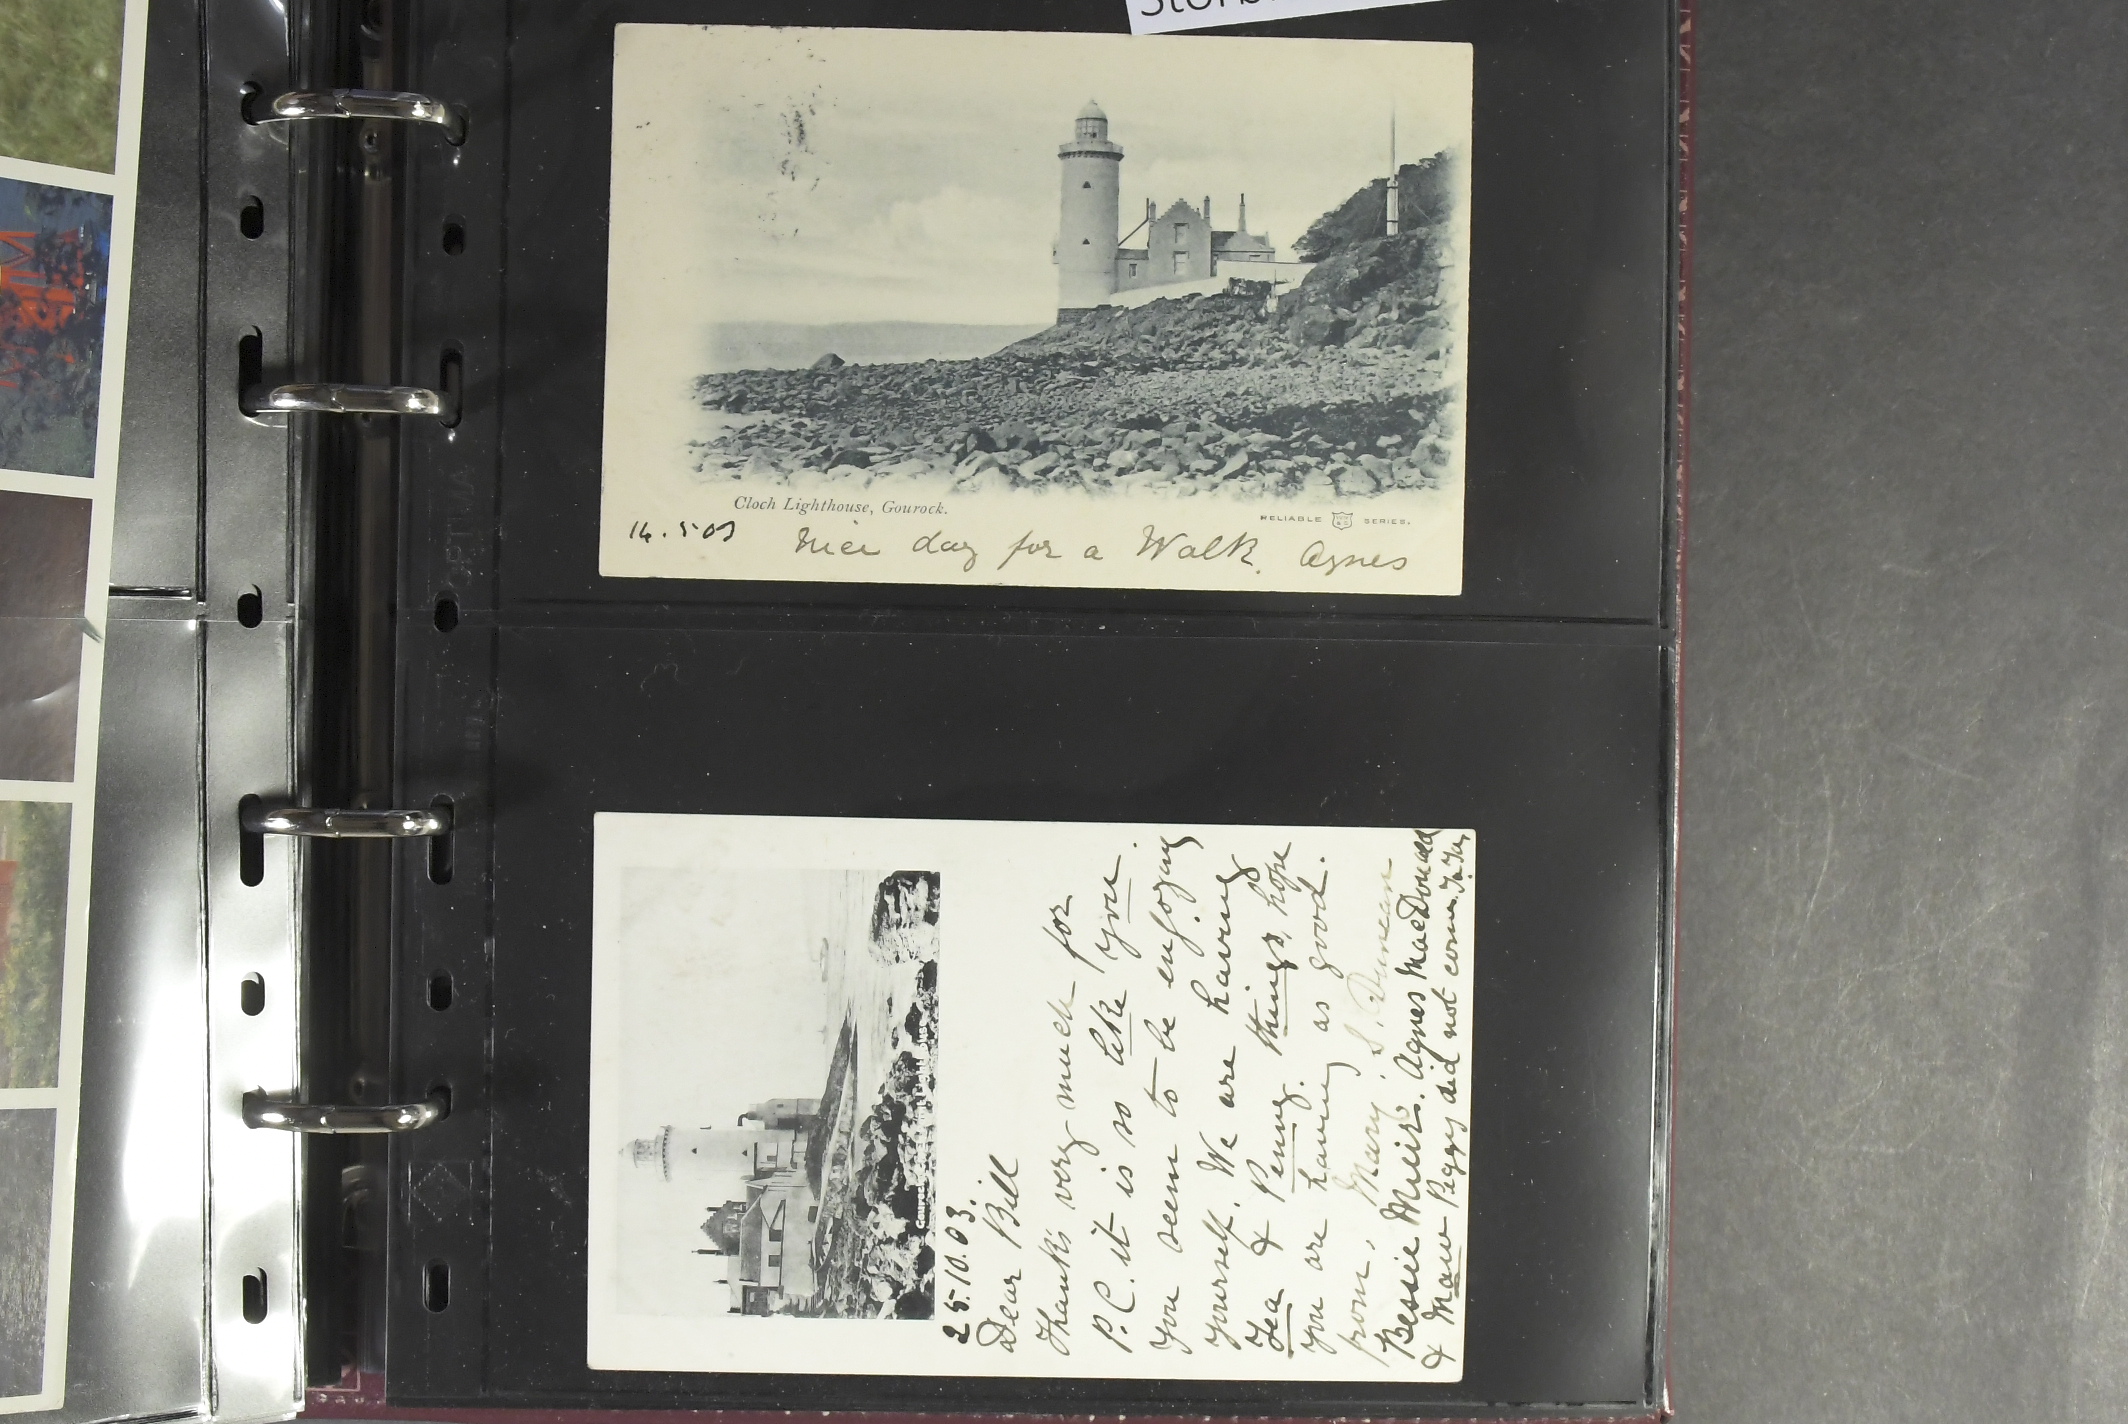 Cloch Lighthouse, Gourock.
RELIABLE W R & S SERIES.
14.5.03 Nice day for a Walk. Agnes
25.10.03.
Dear Bill
Thanks very much for
P.C. it is so like you.
you seem to be enjoying
yourself. We are having
Tea & Penny things, hope
you are having as good.
from, Mary S. Duncan
Bessie Muir. Agnes MacDonald
& Maw Peggy did not come